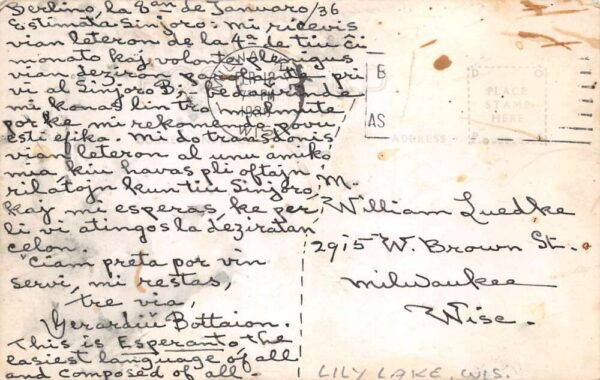 Berlino, la 8an de Januaro/36
Estimata Sinjoro: Mi ricevis
vian leteron de la 4ª de tiu ĉi
monato kaj volonte plenigus
vian deziron parolante pri
vi al Sinjoro B;
mi konas lin tro malmulte
por ke mi rekomendo povu
esti efika. Mi do transdonis
vian leteron al unu amiko
mia kiu havas pli oftajn
rilatojn kun tiu Sinjoro,
kaj mi esperas, ke per
li vi atingos la deziratan
celon.
Ciam preta por vin
servi, mi restas,
tre via,
Gerardiu Bottaion.
This is Esperanto the
easiest language of all
and composed of all.
M.
William Luedke
2915 W. Brown St.
Milwaukee
Wisc.
LILY LAKE, WIS.
PLACE
STAMP
HERE
ADDRESS
WIS